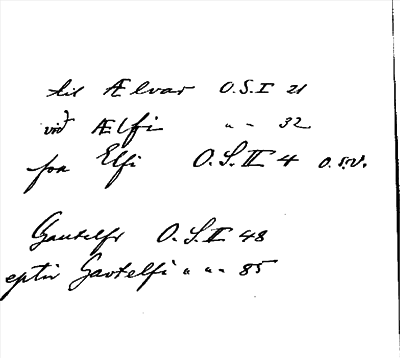 til Ælvar O.S.I 21
við Ælfi " " 32
fra Elfi O.S.II 4 o.s.v.
Gautelfr O.S.II 48
eptir Gavtelfi " " 85